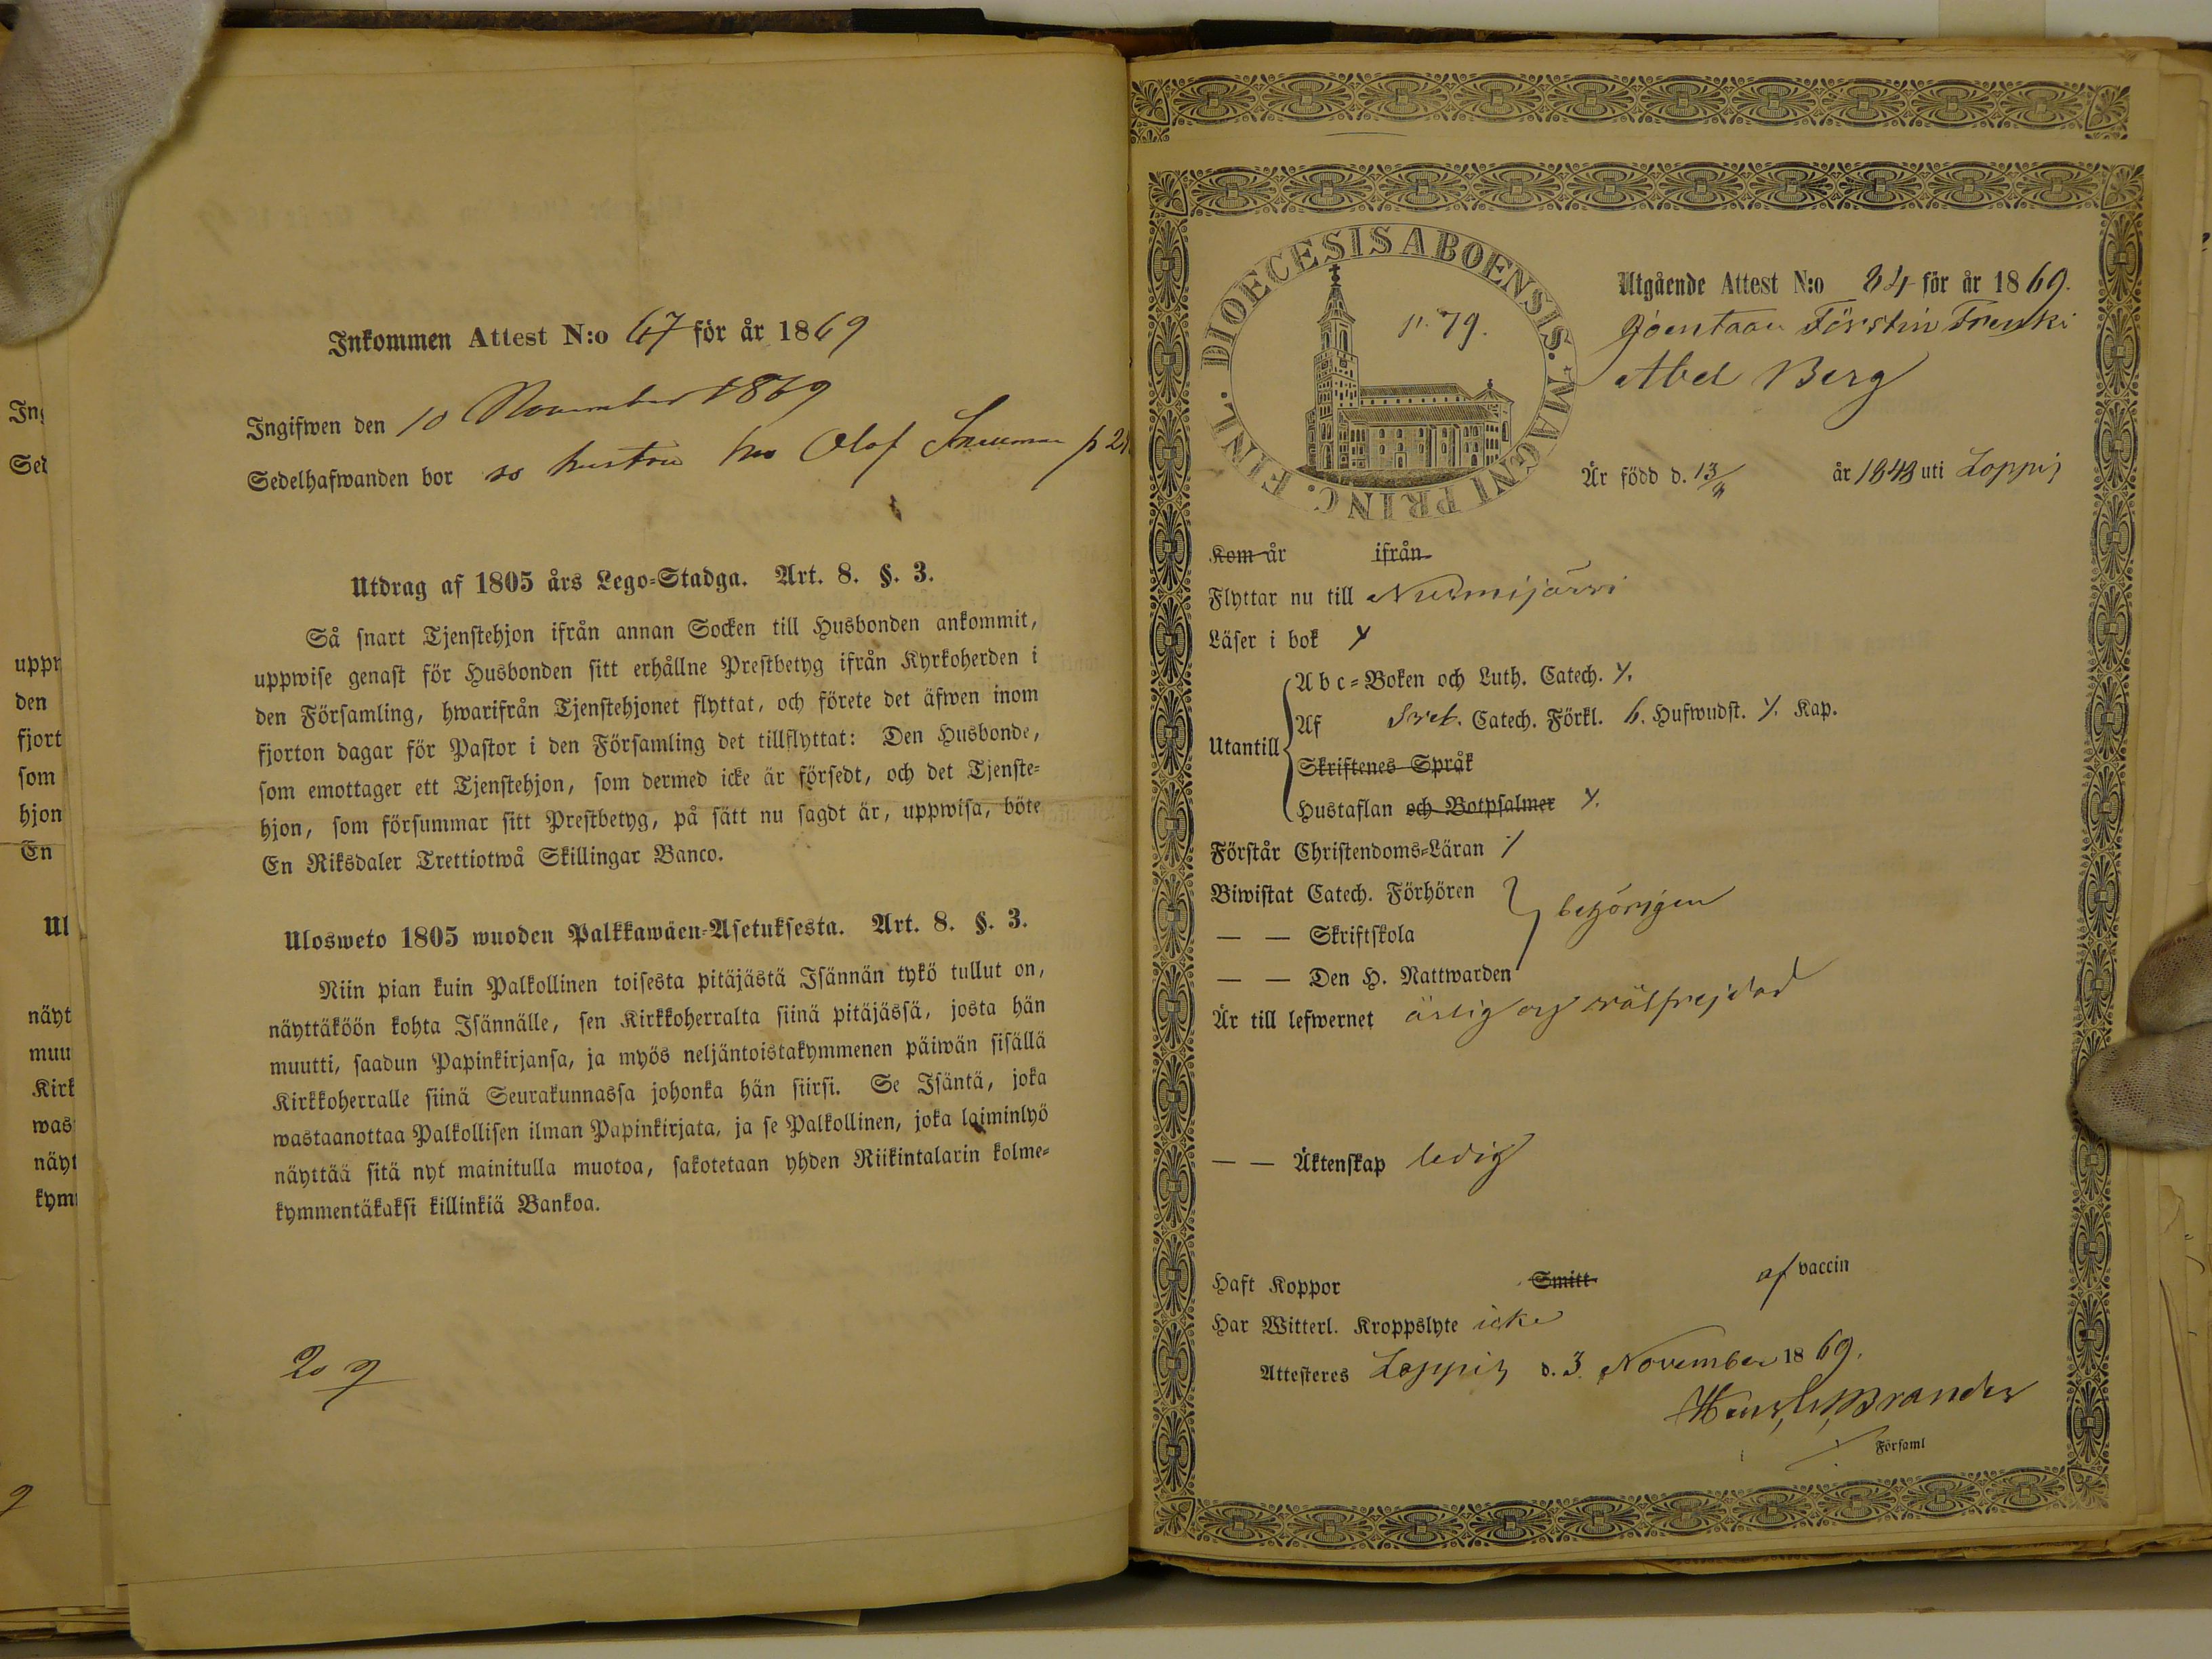 Ing
Sed
uppr
den
fjort
som
hjon
En
Ul
näyt
muu
Kirk
was
näyt
kym
Inkommen Attest N:o 67 för år 1869
Ingifwen den 10 November 1869
Sedelhafwanden bor hos Olof
Utdrag af 1805 års Lego-Stadga. Art. 8. §. 3.
Så snart Tjenstehjon ifrån annan Socken till Husbonden ankommit,
uppwise genast för Husbonden sitt erhållne Prestbetyg ifrån Kyrkoherden i
den Församling, hwarifrån Tjenstehjonet flyttat, och förete det äfwen inom
fjorton dagar för Pastor i den Församling det tillflyttat: Den Husbonde,
som emottager ett Tjenstehjon, som dermed icke är försedt, och det Tjenste-
hjon, som försummar sitt Prestbetyg, på sätt nu sagdt är, uppwisa, böte
En Riksdaler Trettiotwå Skillingar Banco.
Ulosweto 1805 wuoden Palkkawäen-Asetuksesta. Art. 8. §. 3.
Niin pian kuin Palkollinen toisesta pitäjästä Isännän tykö tullut on,
näyttäköön kohta Isännälle, sen Kirkkoherralta siinä pitäjässä, josta hän
muutti, saadun Papinkirjansa, ja myös neljäntoistakymmenen päiwän sisällä
Kirkkoherralle siinä Seurakunnassa johonka hän siirsi. Se Isäntä, joka
wastaanottaa Palkollisen ilman Papinkirjata, ja se Palkollinen, joka laiminlyö
näyttää sitä nyt mainitulla muotoa, sakotetaan yhden Riikintalarin kolme-
kymmentäkaksi killinkiä Bankoa.
DIOECESIS ABOENSIS. MAGNI PRINC. FINL.
p. 79.
Utgående Attest N:o 84 för år 1869.
Abel Berg
Är född d. 13/ år 1843 uti Loppis
Kom år ifrån
Flyttar nu till Nurmijärvi
Läser i bok
Utantill
Abc-Boken och Luth. Catech.
Af Svet. Catech. Förkl. 6. Hufwudst. Kap.
Skriftenes Språk
Hustaflan och Botpsalmer
Förstår Christendoms-Läran
Biwistat Catech. Förhören
behörigen
— — Skriftskola
— — Den H. Nattwarden
Är till lefwernet ärlig och välfrejdad
— — Äktenskap ledig
Haft Koppor Smitt af vaccin
Har Witterl. Kroppslyte icke
Attesteres Loppis d. 3 November 1869.
Brander
Församl